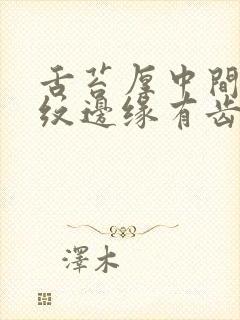 舌苔厚中間
紋邊缘有齿
澤木